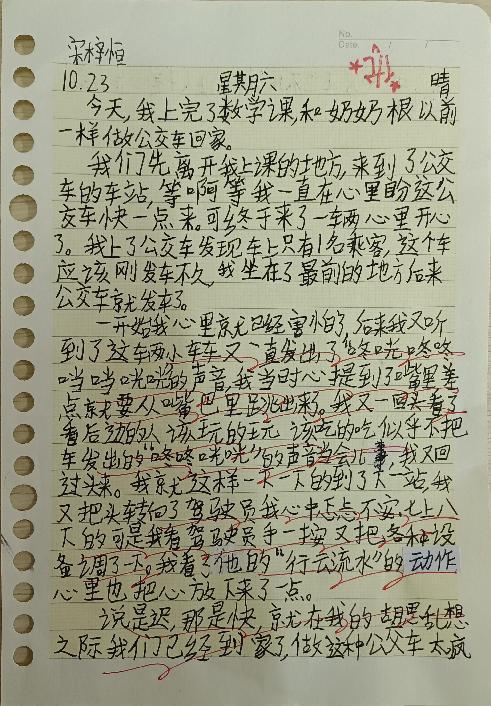 宋梓恒
No.
Date. / /
10.23 星期六 晴
今天,我上完了数学课,和奶奶根以前
一样做公交车回家。
我们先离开我上课的地方,来到了公交
车的车站,等啊等我一直在心里盼这公
交车快一点来。可终于来了一车两心里开心
了。我上了公交车发现车上只有1名乘客,这个车
应该刚发车不久,我坐在了最前的地方后来
公交车就发车了。
一开始我心里就已经害怕了,后来我又听
到了这车两小车车又一直发出了“咚咣咚咚
当当咣咣的声音,我当时心提到了嘴里差
点就要从嘴巴里跳出来了。我又一回头看了
看后边的人该玩的玩该吃的吃似乎不把
车发出的“咚咚咣咣”的声音当会儿事,我又回
过头来。我就这样一下一下的到了下一站,我
又把头转向了驾驶员我心中忐忑不安七上八
下的可是我看驾驶员手一按又把各种设
备调了下。我看了他的“行云流水”的动作
心里也把心放下来了一点。
说是迟,那是快,就在我的胡思乱想
之际我们已经到家了,做这种公交车太疯